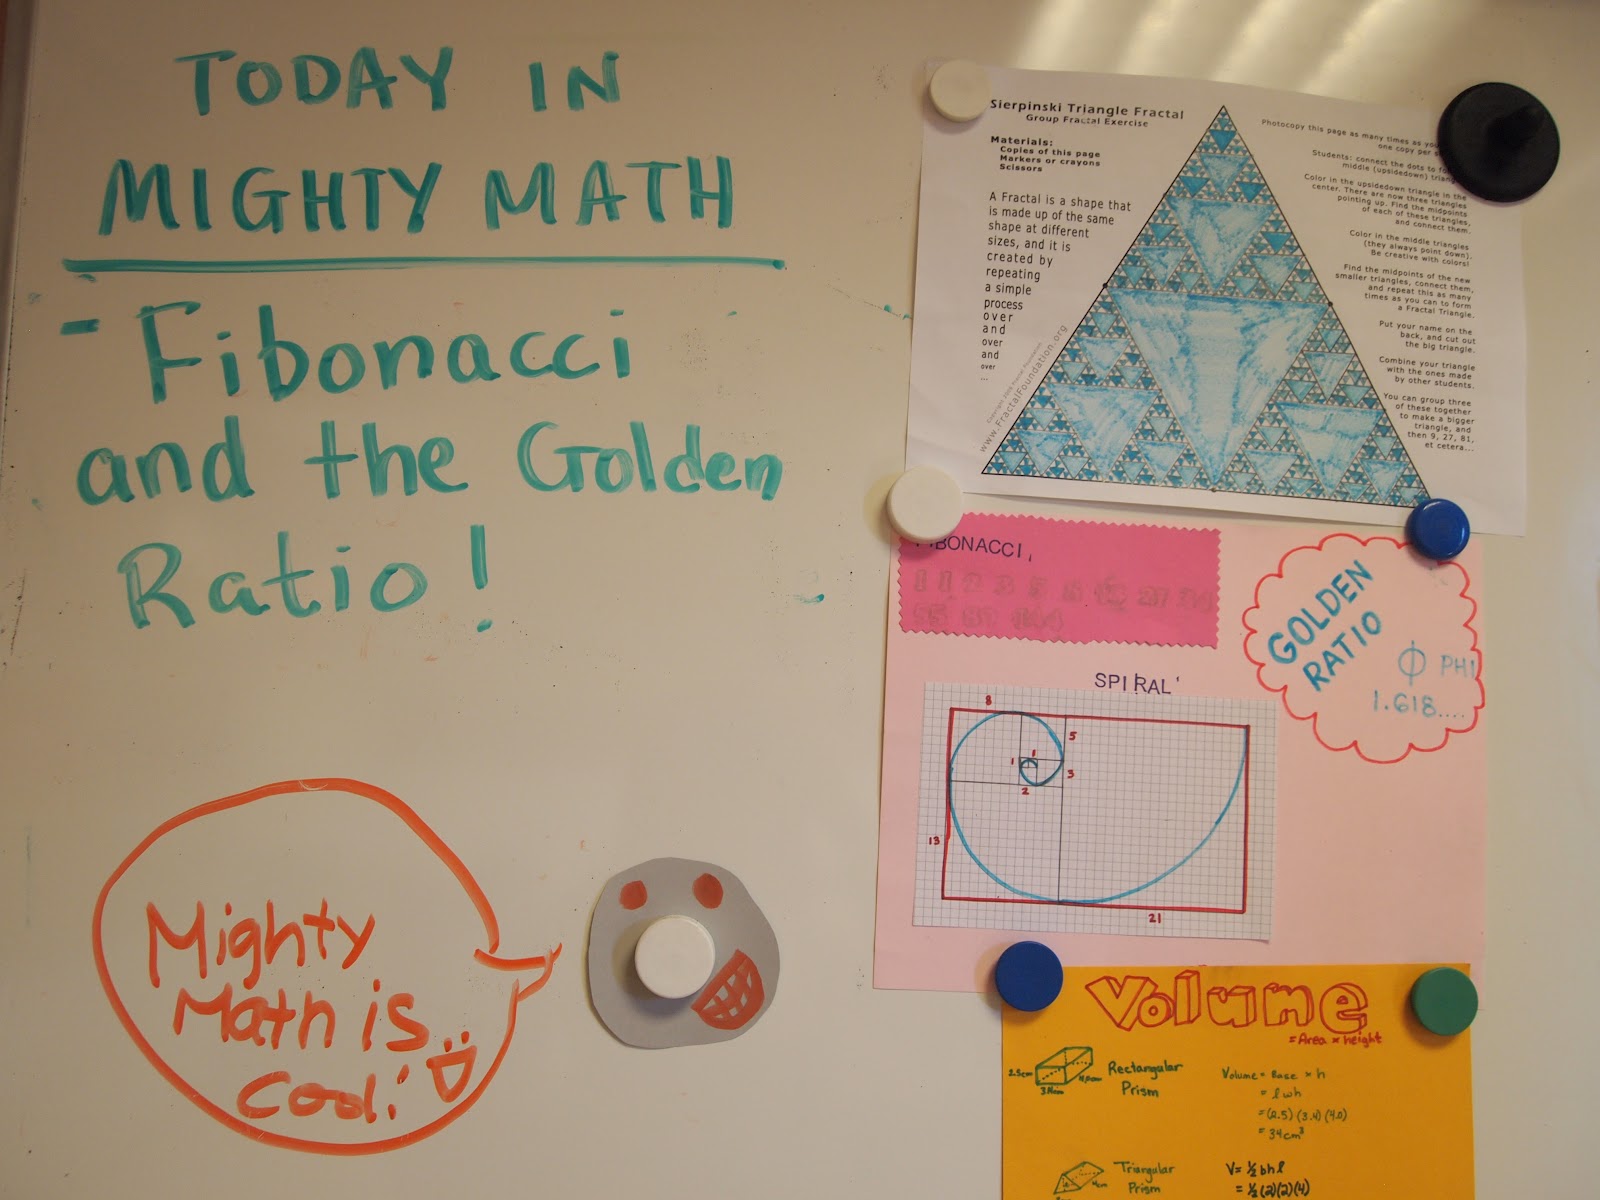 TODAY IN
MIGHTY MATH
- Fibonacci
and the Golden
Ratio!
Mighty
Math is
Cool!
Sierpinski Triangle Fractal
Group Fractal Exercise
Materials:
Copies of this page
Markers or crayons
Scissors
A Fractal is a shape that
is made up of the same
shape at different
sizes, and it is
created by
repeating
a simple
process
over
and
over
and
over
...
www.FractalFoundation.org
Photocopy this page as many times as
one copy per
Students: connect the dots to
middle (upsidedown)
Color in the upsidedown triangle in the
center. There are now three triangles
pointing up. Find the midpoints
of each of these triangles,
and connect them.
Color in the middle triangles
(they always point down).
Be creative with colors!
Find the midpoints of the new
smaller triangles, connect them,
and repeat this as many
times as you can to form
a Fractal Triangle.
Put your name on the
back, and cut out
the big triangle.
Combine your triangle
with the ones made
by other students.
You can group three
of these together
to make a bigger
triangle, and
then 9, 27, 81,
et cetera...
FIBONACCI
1 1 2 3 5 8 13 21 34
55 89 144
GOLDEN
RATIO
Φ PHI
1.618....
SPIRAL
8
5
1
1
3
2
13
21
Volume
= Area × height
2.5cm
3.4cm
4.0cm
Rectangular
Prism
Volume = Base × h
= lwh
= (2.5)(3.4)(4.0)
= 34cm³
Triangular
Prism
4cm
V = ½ bhl
= ½ (2)(2)(4)